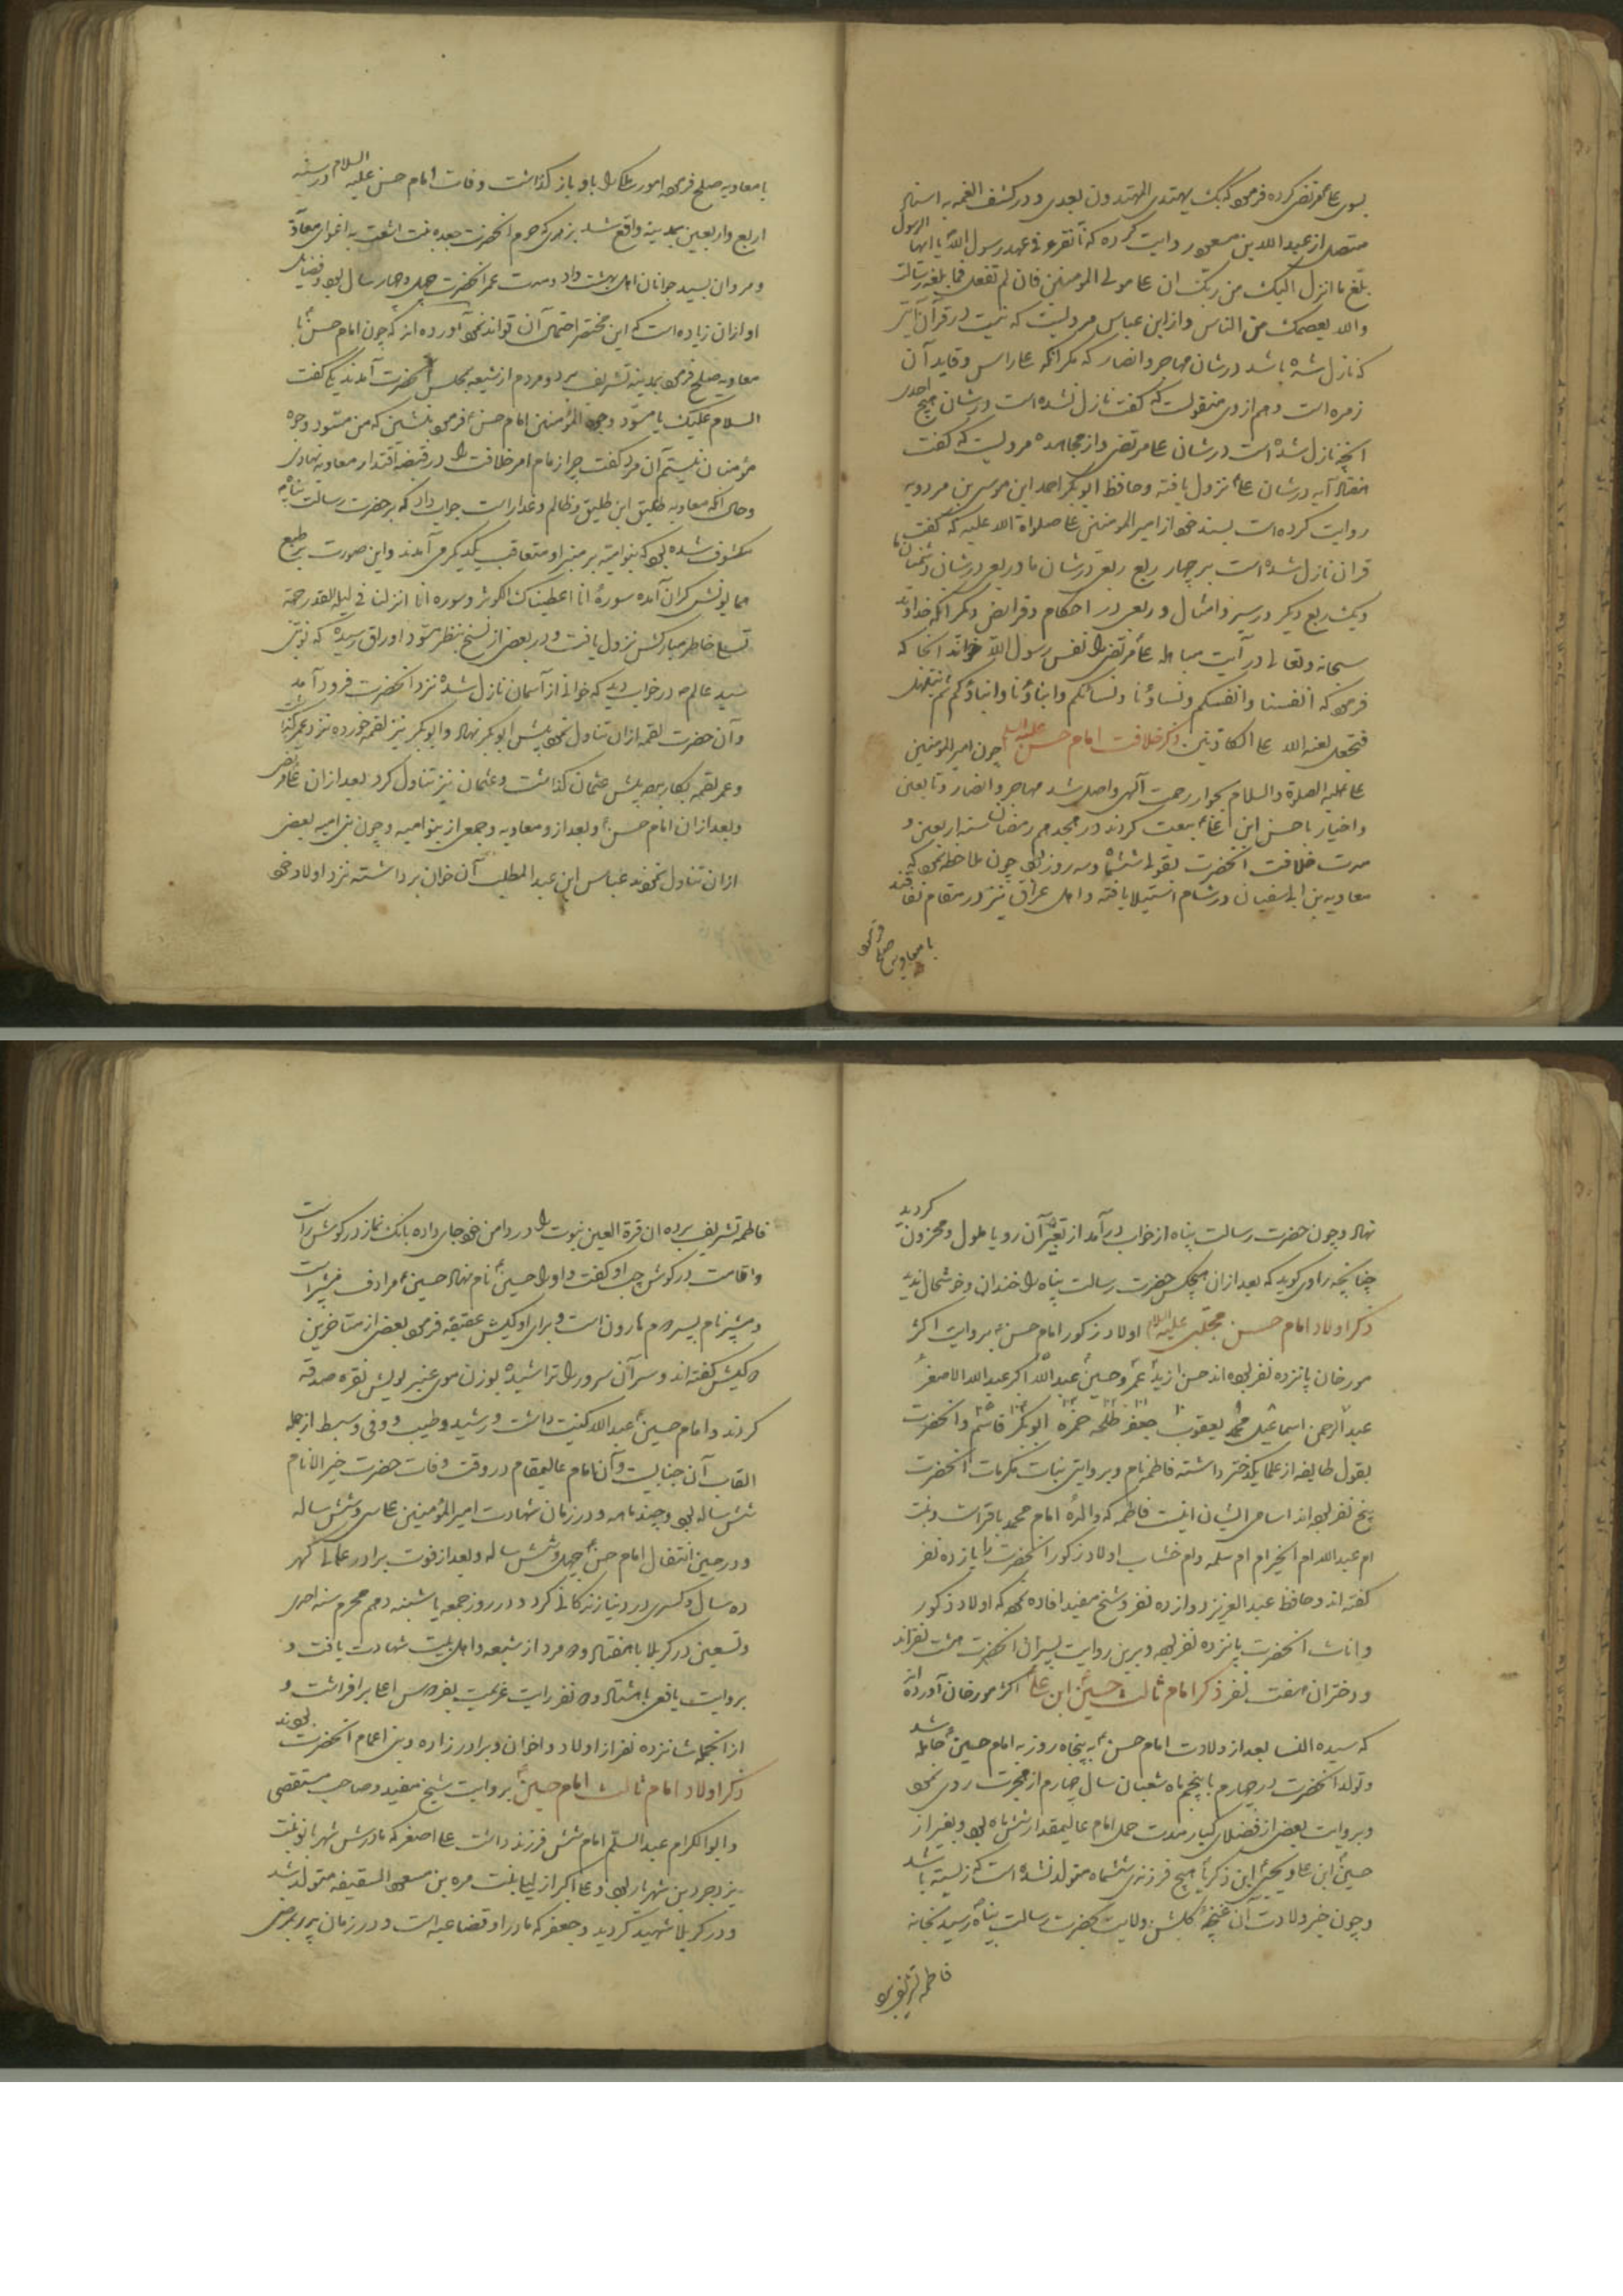 بسوی علی مرتضی کرده فرمود که بک یهتدی المهتدون بعدی و در کشف الغمه به اسناد
متصل از عبد الله بن مسعود روایت کرده که کنا نقرء فی عهد رسول الله یا ایها الرسول
بلغ ما انزل الیک من ربک ان علیا مولی المومنین فان لم تفعل فما بلغت رسالته
والله یعصمک من الناس و از ابن عباس مرویست که نیست در قرآن آیتی
که نازل شده باشد در شان مهاجر و انصار که مگر آنکه علی راس و قاید آن
زمره است و هم ازوی منقولست که گفت نازل نشده است در شان هیچ احدی
آنچه نازل شده است در شان علی مرتضی و از مجاهد مرویست که گفت
هفتاد آیه در شان علی نزول یافته و حافظ ابو بکر احمد ابن موسی بن مردویه
روایت کرده است بسند خود از امیر المومنین علی صلواة الله علیه که گفت
قران نازل شده است بر چهار ربع ربعی در شان ما و ربعی در شان دشمنان ما
و یک ربع دیگر در سیر و امثال و ربعی در احکام و فرایض و دیگر آنکه خداوند
سبحانه و تعالی در آیت مباهله علی مرتضی را نفس رسول الله خوانده آنجا که
فرمود که انفسنا و انفسکم و نساؤنا و نسائکم و ابناؤنا و ابناؤکم ثم نبتهل
فنجعل لعنه الله علی الکاذبین ذکر خلافت امام حسن علیه السلام چون امیر المومنین
علی علیه الصلوة والسلام بجوار رحمت آلهی واصل شد مهاجر و انصار و تابعین
و اخیار با حسن ابن علی بیعت کردند در هجدهم رمضان سنه اربعین و
مدت خلافت آنحضرت بقولی ششماه و سه روز بود چون ملاحظه نمود که
معاویه بن ابی سفیان در شام استیلا یافته و اهل عراق نیز در مقام نفاقند
با معاویه صلح فرمود
با معاویه صلح فرمود امور ملک را باو باز گذاشت وفات امام حسن علیه السلام در سنه
اربع و اربعین بمدینه واقع شد بزهری که حرم آنحضرت جعده بنت اشعث به اغوای معاویه
و مروان بسید جوانان اهل بهشت داد و مدت عمر آنحضرت چهل و چهار سال بود و فضایل
او از ان زیاده است که این مختصر احتمال آن تواند نمود آورده اند که چون امام حسن با
معاویه صلح فرمود بمدینه تشریف برد و مردم از شیعه بمجلس آنحضرت آمدند یکی گفت
السلام علیک یا مسود وجوه المؤمنین امام حسن فرمود بنشین که من مسود وجوه
مؤمنان نیستم آن مرد گفت چرا زمام امر خلافت را در قبضه اقتدار معاویه نهادی
و حال آنکه معاویه طلیق ابن طلیق و ظالم و غدار است جواب داد که بر حضرت رسالت پناه
مکشوف شده بود که بنو امیه بر منبر او متعاقب یکدیگر می آمدند و این صورت بر طبع
همایونش گران آمده سورۀ انا اعطیناک الکوثر و سوره انا انزلنا فی لیله القدر جهة
تسلی خاطر مبارکش نزول یافت و در بعضی از نسخ بنظر مسود اوراق رسیده که نوبتی
سید عالم در خواب دید که خوانی از آسمان نازل شده نزد آنحضرت فرود آمد
و آن حضرت لقمه ازان تناول نموده پیش ابو بکر نهاد و ابو بکر نیز لقمه خورده نزد عمر گذاشت
و عمر لقمه بکار برده پیش عثمان گذاشت و عثمان نیز تناول کرد بعد از ان علی مرتضی
و بعد از ان امام حسن و بعد ازو معاویه و جمعی از بنو امیه و چون بنی امیه بعضی
ازان تناول نمودند عباس ابن عبد المطلب آن خوان برداشته نزد اولاد خود
نهاد و چون حضرت رسالت پناه از خواب در آمد از تعبیر آن رویا ملول و محزون گردید
چنانچه راوی گوید که بعد از ان هیچکس حضرت رسالت پناه را خندان و خوشحال ندید
ذکر اولاد امام حسن مجتبی علیه السلام اولاد ذکور امام حسن بروایت اکثر
مورخان پانزده نفر بوده اند حسن زید عمرو حسین عبد الله اکبر عبد الله الاصغر
عبد الرحمن اسماعیل محمد یعقوب جعفر طلحه حمزه ابو بکر قاسم و آنحضرت
بقول طایفه از علما یکدختر داشته فاطمه نام و بروایتی بنات مکرمات آنحضرت
پنج نفر بوده اند اسامی ایشان اینست فاطمه که والدۀ امام محمد باقر است و بنت
ام عبد الله ام الخیر ام ام سلمه و ام اولاد ذکور آنحضرت را یازده نفر
گفته اند و حافظ عبد العزیز دوازده نفر و شیخ مفید افاده نموده که اولاد ذکور
و اناث آنحضرت پانزده نفر بوده و برین روایت پسران آنحضرت هشت نفر اند
و دختران هفت نفر ذکر امام ثالث حسین ابن علی اکثر مورخان آورده اند
که سیده النسا بعد از ولادت امام حسن به پنجاه روز به امام حسین حامله شد
و تولد آنحضرت در چهارم یا پنجم ماه شعبان سال چهارم از هجرت روی نمود
و بروایت بعضی از فضلای کبار مدت حمل امام عالیمقدار شش ماه بود و بغیر از
حسین ابن علی و یحیی ابن ذکریا هیچ فرزندی ششماه متولد نشده است که زیسته باشد
و چون خبر ولادت آن غنچه گلشن ولایت بحضرت رسالت پناه رسید بخانه
فاطمه تشریف برده
فاطمه تشریف برده ان قرة العین نبوت را در دامن خود جای داده بانک نماز در گوش راست
و اقامت در گوش چپ او گفت و او را حسین نام نهاد حسین مرادف شبیر است
و شبیر نام پسر دوم هارون است و برای او کبش عقیقه فرمود بعضی از متاخرین
دو کبش گفته اند و سر آن سرور را تراشیده بوزن موی عنبر بویش نقره صدقه
کردند و امام حسین عبد الله کنیت داشت و رشید و طیب و وفی و سبط از جمله
القاب آن جنابست و آن امام عالیمقام در وقت وفات حضرت خیر الانام
شش ساله بود و چند ماهه و در زمان شهادت امیر المؤمنین علی سی و شش ساله
و در حین انتقال امام حسن چهل و شش ساله و بعد از فوت برادر عالی گهر
ده سال و کسری در دنیا زندگانی کرد و در روز جمعه یا شنبه دهم محرم سنه احدی
و تسعین در کربلا با هفتاد و دو مرد از شیعه و اهل بیت شهادت یافت و
بروایت یافعی با هشتاد و دو نفر رایت عزیمت بفردوس اعلی بر افراشت و
از آنجمله شانزده نفر از اولاد و اخوان و برادر زاده و بنی اعمام آنحضرت بودند
ذکر اولاد امام ثالث امام حسین بروایت شیخ مفید و صاحب مستقصی
و ابو المکرام عبد السلم امام شش فرزند داشت علی اصغر که مادرش شهر بانو بنت
یزدجرد بن شهریار بود و علی اکبر از لیلی بنت مره بن مسعود السقیفه متولد شد
و در کربلا شهید گردید و جعفر که مادر او قضاعیه است و در زمان پدر بمرد